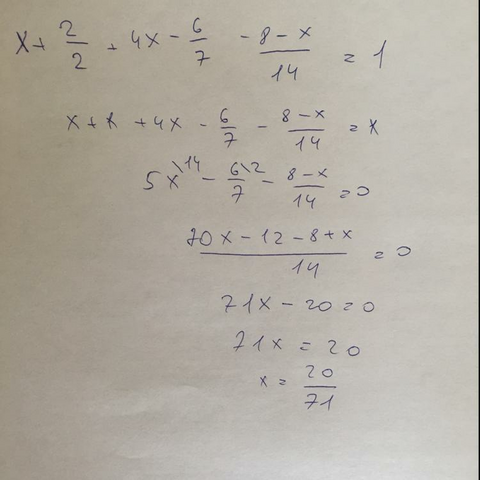 x + 2/2 + 4x - 6/7 - (8-x)/14 = 1
x + 1 + 4x - 6/7 - (8-x)/14 = 1
5x\14 - 6\2/7 - (8-x)/14 = 0
(70x - 12 - 8 + x)/14 = 0
71x - 20 = 0
71x = 20
x = 20/71